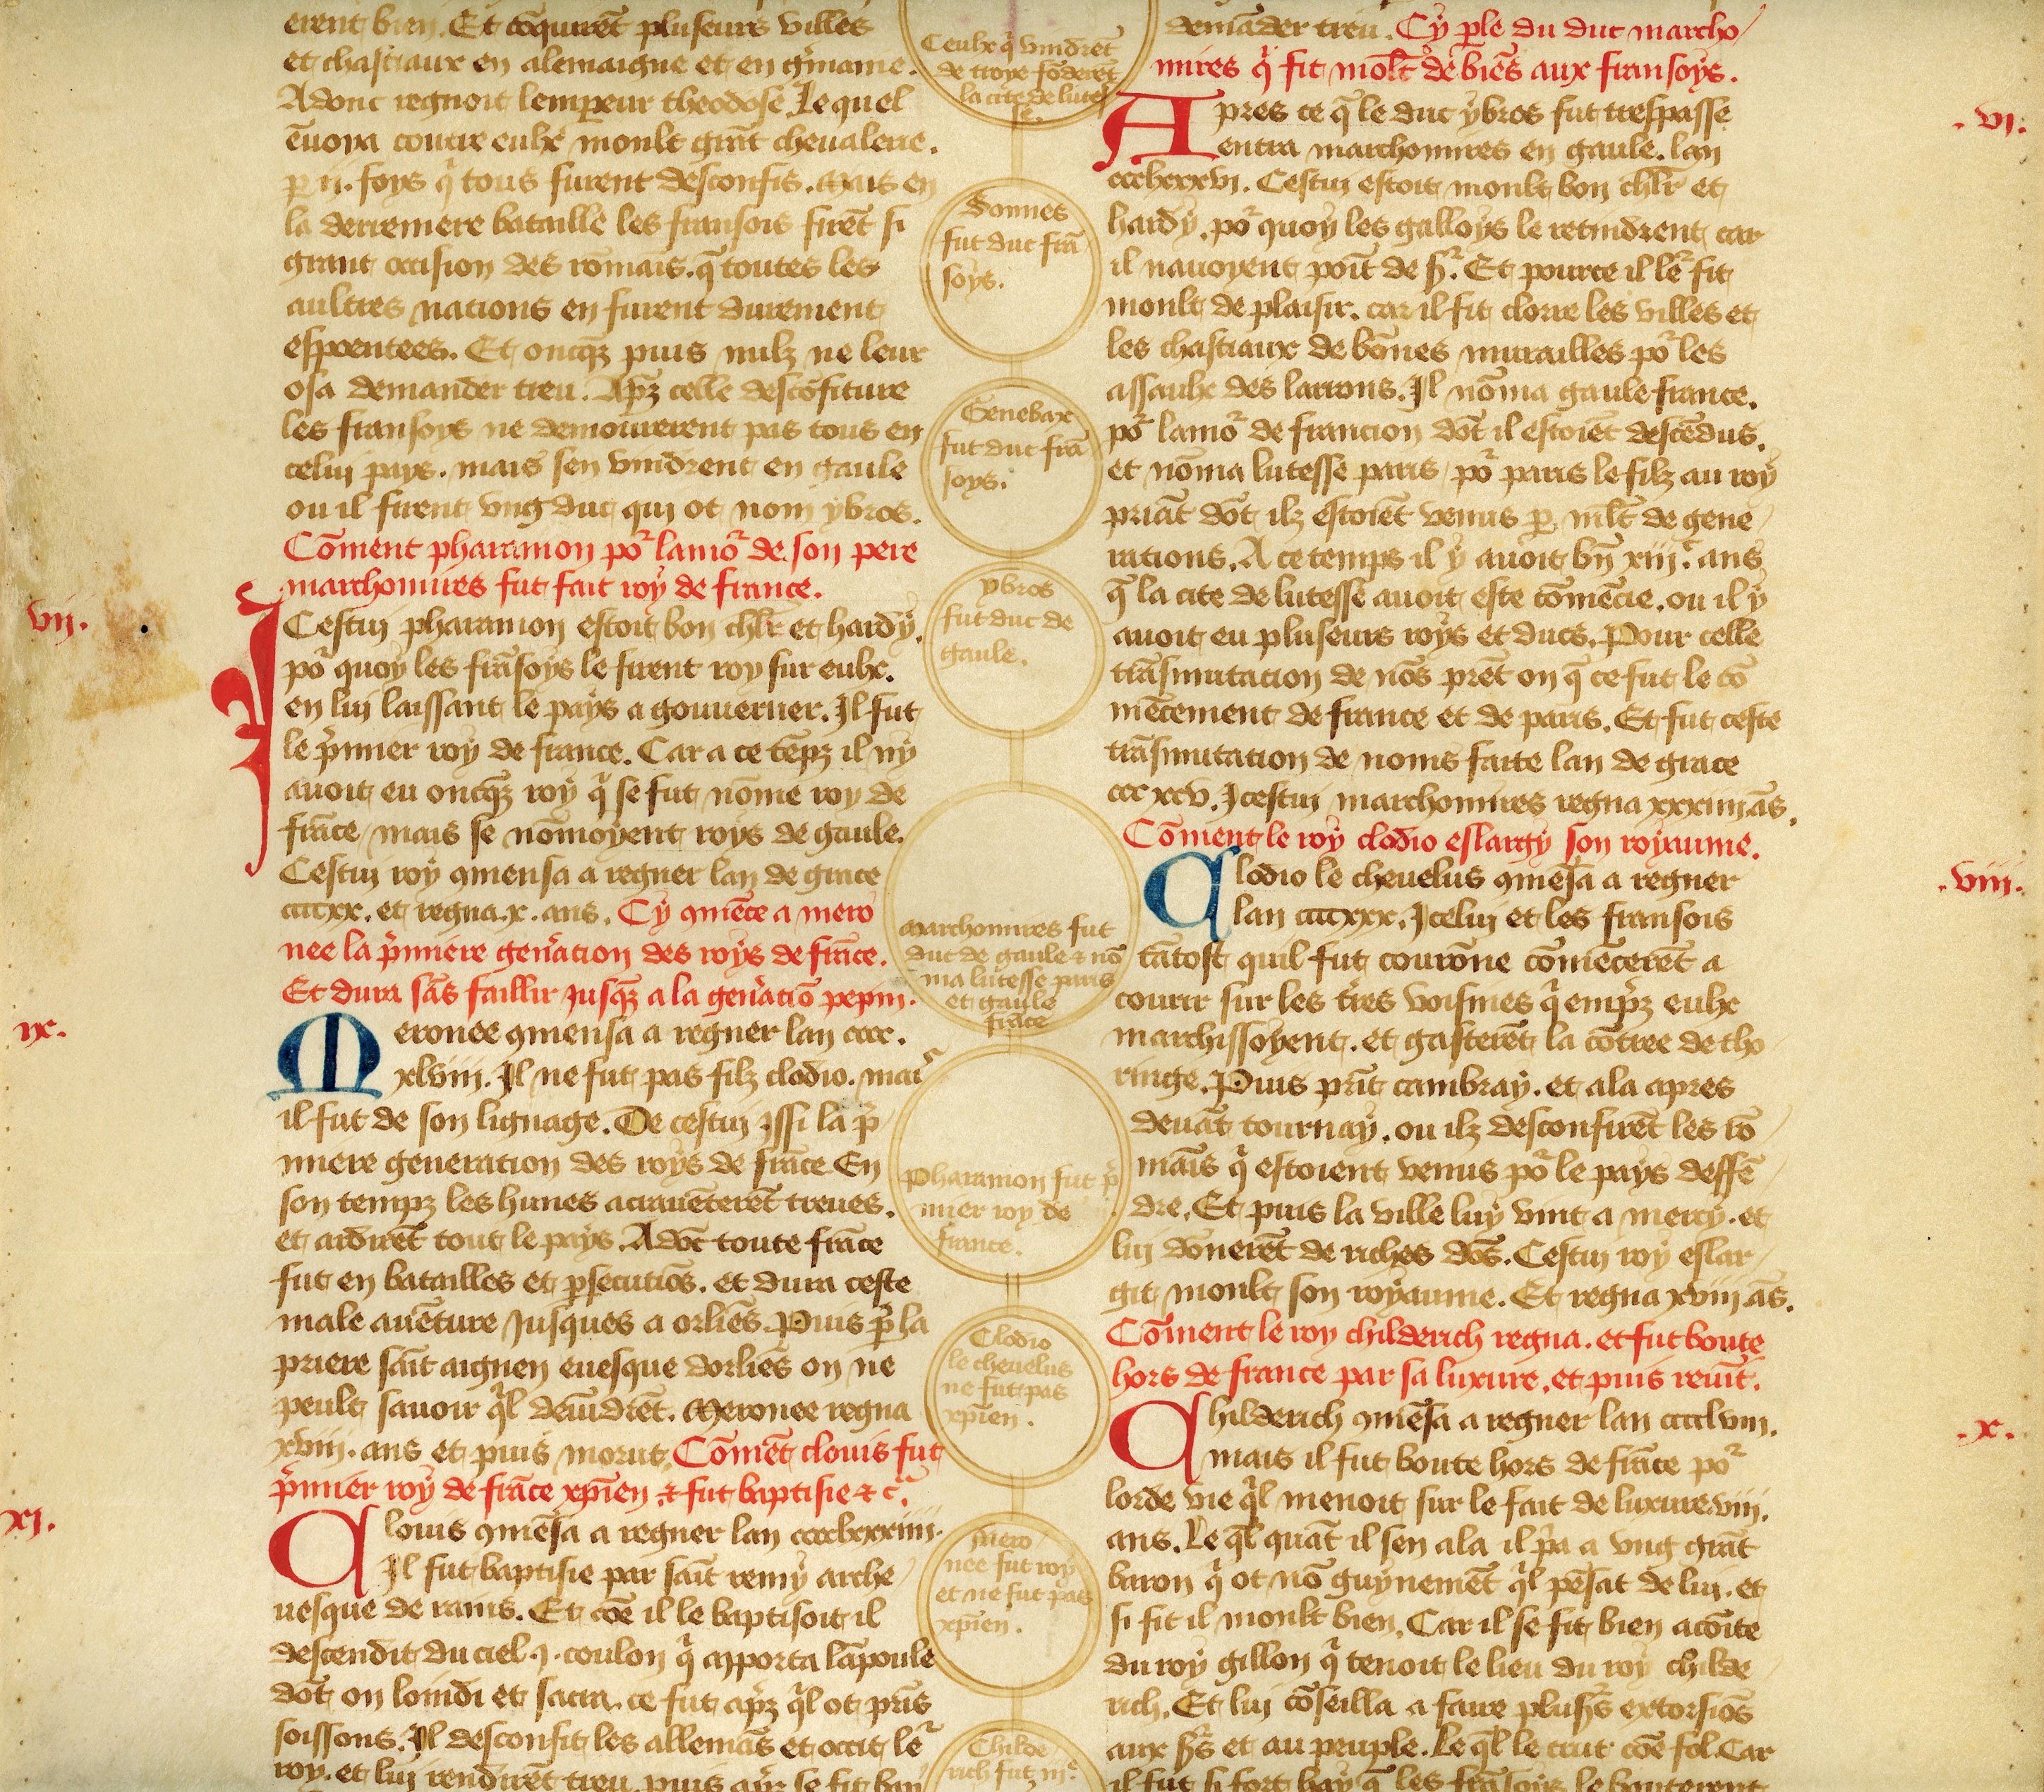 erent bien. Et cōquirēt pluseurs villes
et chastiaux en alemaigne et en gͬmanie.
Adonc regnoit lempereur theodose. Le quel
ēuoya contre eulx moult grāt cheualerie.
ꝑ ii. foys q̄ tous furent desconfis. mais en
la derreniere bataille les fransois firēt si
grant occision des rōmais. q̄ toutes les
aultres nations en furent durement
espoentees. Et oncqꝫ puis nulz ne leur
osa demander treu. Apꝫ celle descōfiture
les fransoys ne demourerent pas tous en
celui pays. mais sen vindrent en gaule
ou il firent vng duc qui ot nom ybros.
Cōment pharamon poͬ lamoͬ de son pere
marchomires fut fait roy de france.
vii.
Icestui pharamon estoit bon chlr̄ et hardy.
poͬ quoy les frāsoys le firent roy sur eulx.
en lui laissant le pays a gouuerner. Il fut
le p̄mier roy de france. Car a ce tēpꝫ il ny
auoit eu oncqꝫ roy q̄ se fut nōme roy de
frāce / mais se nōmoyent roys de gaule.
Cestui roy ꝯmensa a regner lan de grace
ccccxx. et regna .x. ans. Cy ꝯmēce a mero
nee la p̄miere gen̄ation des roys de frāce.
Et dura sās faillir jusqꝫ a la gen̄atiō pepin.
ix.
Meronee ꝯmensa a regner lan cccc.
xlviii. Il ne fut pas filz clodio. mais
il fut de son lignage. De cestui issi la p̄
miere generation des roys de frāce En
son tempꝫ les hunes acrauēterēt treues.
et ardirēt tout le pays. Adōc toute frāce
fut en batailles et ꝑsecutiōs. et dura ceste
male auēture jusques a orliēs. Puis ꝑ la
priere saīt aignen euesque dorliēs on ne
peult sauoir q̄l deuīdrēt. Meronee regna
xviii. ans et puis morut. Cōmēt clouis fut
p̄mier roy de frāce xp̄ien. ⁊ fut baptisie ⁊ cͬ.
xi.
Clouis ꝯmēsa a regner lan cccclxxxiiii.
Il fut baptisie par saīt remy arche
uesque de rains. Et cōe il le baptisoit il
descendit du ciel .j. coulon q̄ aporta lāpoule
dōt on loindi et sacra. ce fut apꝫ q̄l ot pris
soissons. Il desconfit les allemās et occit leͬ
roy. et lui rendirēt treu. puis
Ceulx q̄ vindrēt
de troye fōderēt
la cite de lutes
se.
Sonnes
fut duc frā
soys.
Genebax
fut duc frā
soys.
ybros
fut duc de
gaule.
Marchomires fut
duc de gaule ⁊ nō
ma lutesse paris
et gaule
frāce
Pharamon fut p̄
mier roy de
france.
Clodio
le cheuelus
ne fut pas
xp̄ien.
Mero
nee fut roy
et ne fut pas
xp̄ien.
Childe
rich fut iiiͤ
demāder treu. Cy ꝑle du duc marcho
mires q̄ fit mōlt de biēs aux fransoys.
vi.
Apres ce q̄ le duc ybros fut trespasse
entra marchomires en gaule. lan
ccclxxxvi. Cestui estoit moult bon chlr̄ et
hardy. poͬ quoy les galloys le retindrent car
il nauoyent poīt de sͬ. Et pource il leͬ fit
moult de plaisir. car il fit clorre les villes et
les chastiaux de bōnes murailles poͬ les
assaulx des larrons. Il nōma gaule france.
poͬ lamoͬ de francion dōt il estoiēt descēdus.
et nōma lutesse paris / poͬ paris le filz au roy
priāt dōt ilz estoiēt venus ꝑ mlt̄ de gene
rations. A ce temps il y auoit bn̄ xiiiͨ. ans
q̄ la cite de lutesse auoit este cōmēcie. ou il y
auoit eu pluseurs roys et ducs. Pour celle
trāsmutation de nōs prēt on q̄ ce fut le cō
mēcement de france et de paris. Et fut ceste
trāsmutation de noms faite lan de grace
ccc xcv. Icestui marchomires regna xxxiiii ās.
Cōment le roy clodio eslargy son royaume.
viii.
Clodio le cheuelus ꝯmēsa a regner
lan ccccxxx. Icelui et les fransois
tātost quil fut courōne cōmēcerēt a
courir sur les t̄res voisines q̄ empꝫ eulx
marchissoyent. et gasterēt la cōtree de tho
ringe. Puis prīt cambray. et ala apres
deuāt tournay. ou ilz desconfirēt les rō
māis q̄ estoient venus poͬ le pays deffē
dre. Et puis la ville luy vint a mercy. et
lui dōnerēt de riches dōs. Cestui roy eslar
git moult son royaume. Et regna xviii ās.
Cōment le roy childerich regna. et fut boute
hors de france par sa luxure. et puis reuīt.
x.
Childerich ꝯmēsa a regner lan cccclviii.
mais il fut boute hors de frāce poͬ
lorde vie q̄l menoit sur le fait de luxure viii.
ans. Le q̄l quāt il sen ala il p̄a a vng grāt
baron q̄ ot nō guynemēt q̄l pēsat de lui. et
si fit il moult bien. Car il se fit bien acōite
du roy gillon q̄ tenoit le lieu du roy childe
rich. Et lui cōseilla a faire plusr̄s extorsiōs
aux sr̄s et au peuple. Le q̄l le crut cōe fol. Car
il fut si fort hay q̄ les frāsoys le bouterent